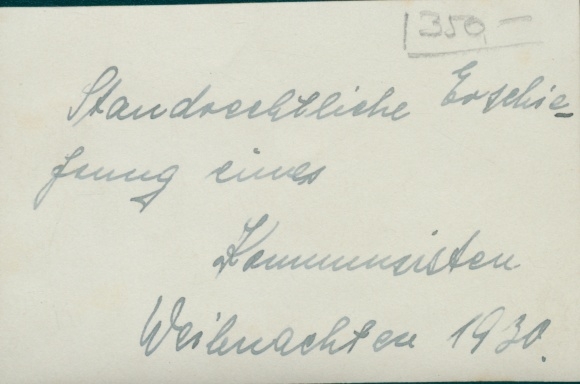 350,—
Standrechtliche Erschie-
ßung eines
Kommunisten
Weihnachten 1930.